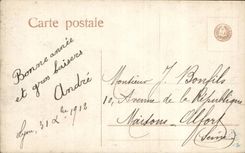 Carte postale
Bonne année
et gros baisers
André
Lyon, 31 Xbre 1912
Monsieur J. Bonfils
10, Avenue de la République
Maisons-Alfort
(Seine)